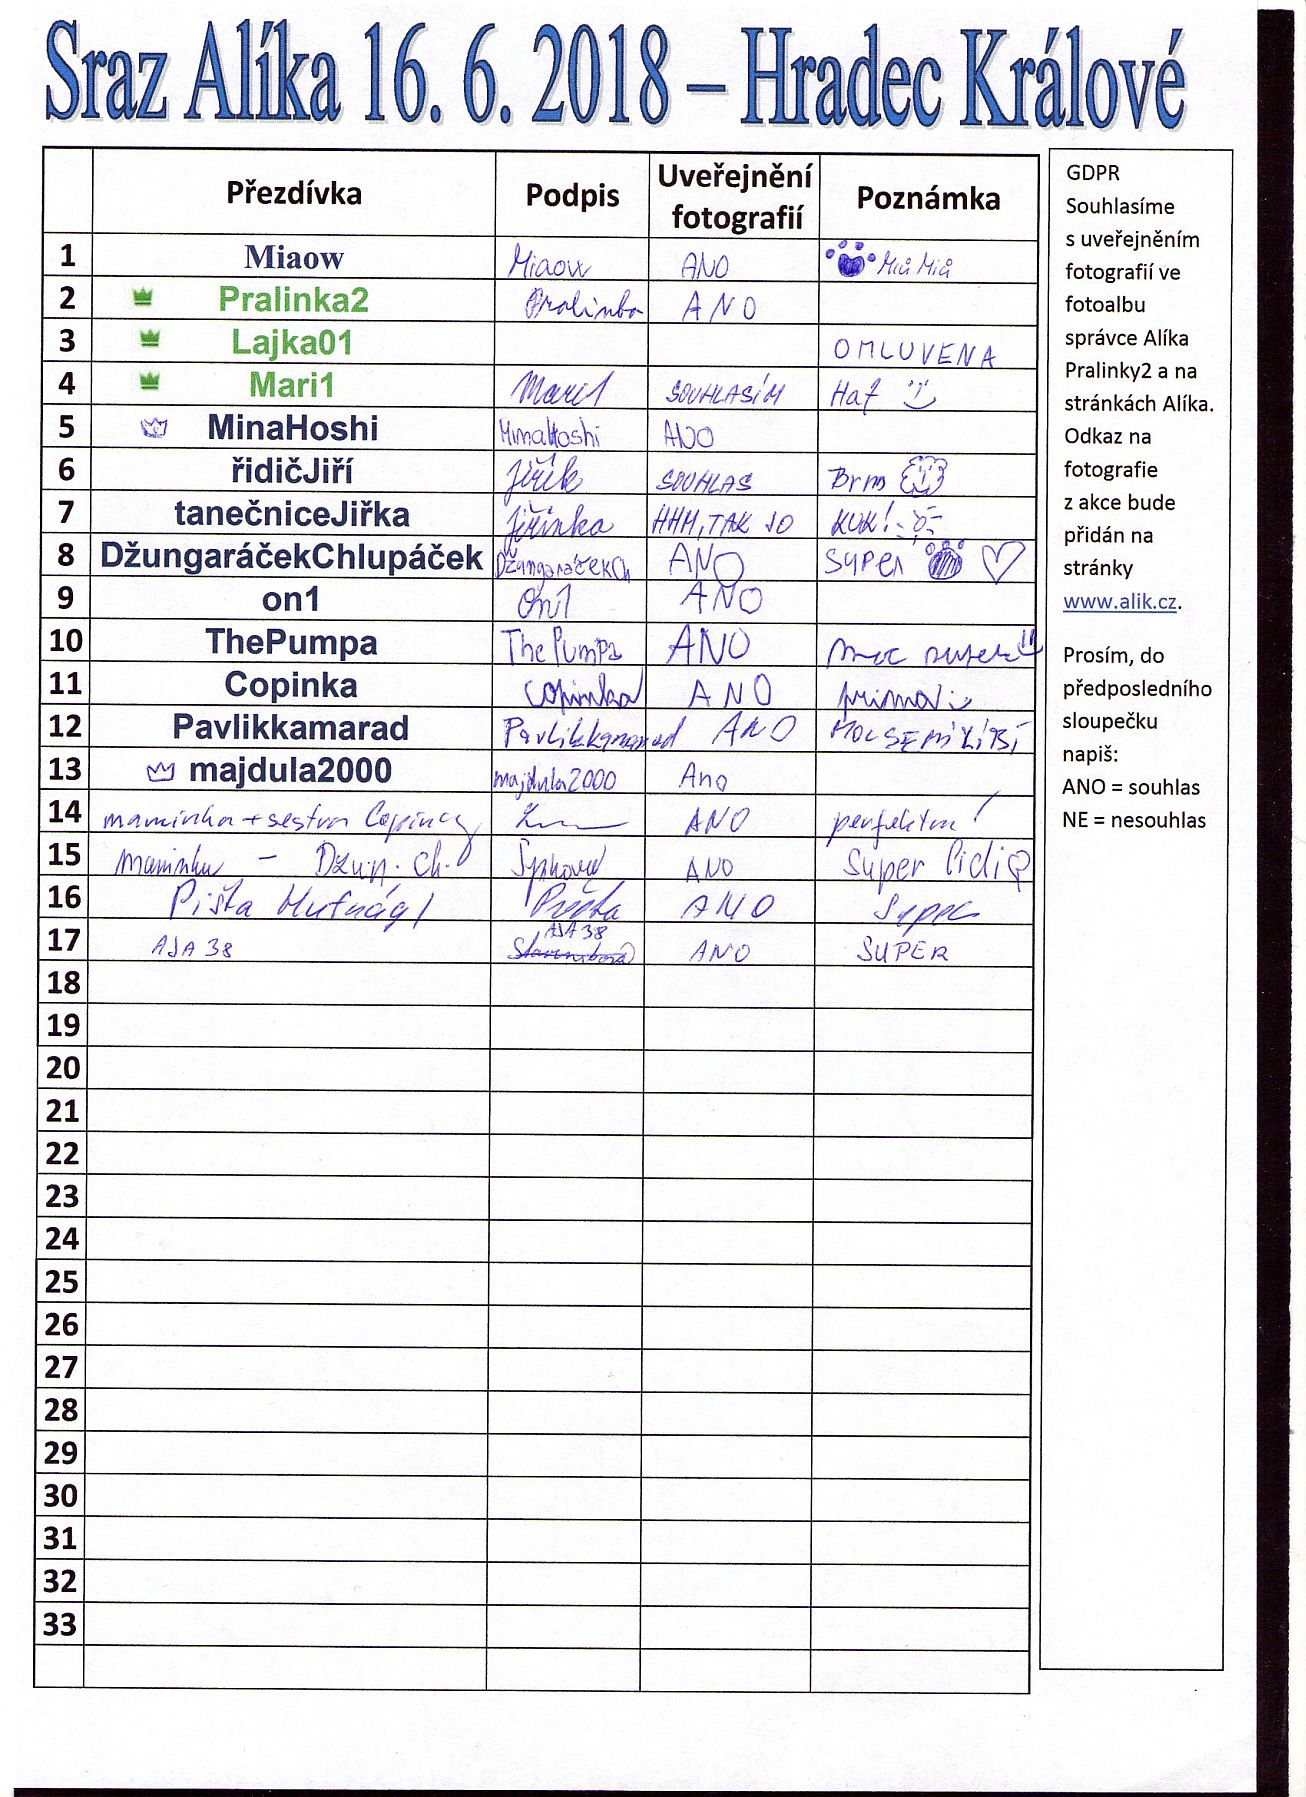 Sraz Alíka 16. 6. 2018 – Hradec Králové
Přezdívka Podpis Uveřejnění fotografií Poznámka
1 Miaow Miaow ANO Miů Miů
2 Pralinka2 Pralinka ANO
3 Lajka01 OMLUVENA
4 Mari1 Mari1 SOUHLASÍM Haf
5 MinaHoshi MinaHoshi ANO
6 řidičJiří Jiřík SOUHLAS Brm
7 tanečniceJiřka Jiřinka HHM, TAK JO KUK!
8 DžungaráčekChlupáček DžungaráčekCh ANO SUPER
9 on1 on1 ANO
10 ThePumpa ThePumpa ANO moc super
11 Copinka Copinka ANO prima
12 Pavlikkamarad Pavlikkamarad ANO MOC SE MI LÍBÍ
13 majdula2000 majdula2000 Ano
14 maminka + sestra Copinky ANO perfektní!
15 maminka – Džun. Ch. ANO Super lidi
16 Pišta Hufnágl Pišta ANO Super
17 AJA 38 AJA 38 ANO SUPER
18
19
20
21
22
23
24
25
26
27
28
29
30
31
32
33
GDPR
Souhlasíme
s uveřejněním
fotografií ve
fotoalbu
správce Alíka
Pralinky2 a na
stránkách Alíka.
Odkaz na
fotografie
z akce bude
přidán na
stránky
www.alik.cz.
Prosím, do
předposledního
sloupečku
napiš:
ANO = souhlas
NE = nesouhlas